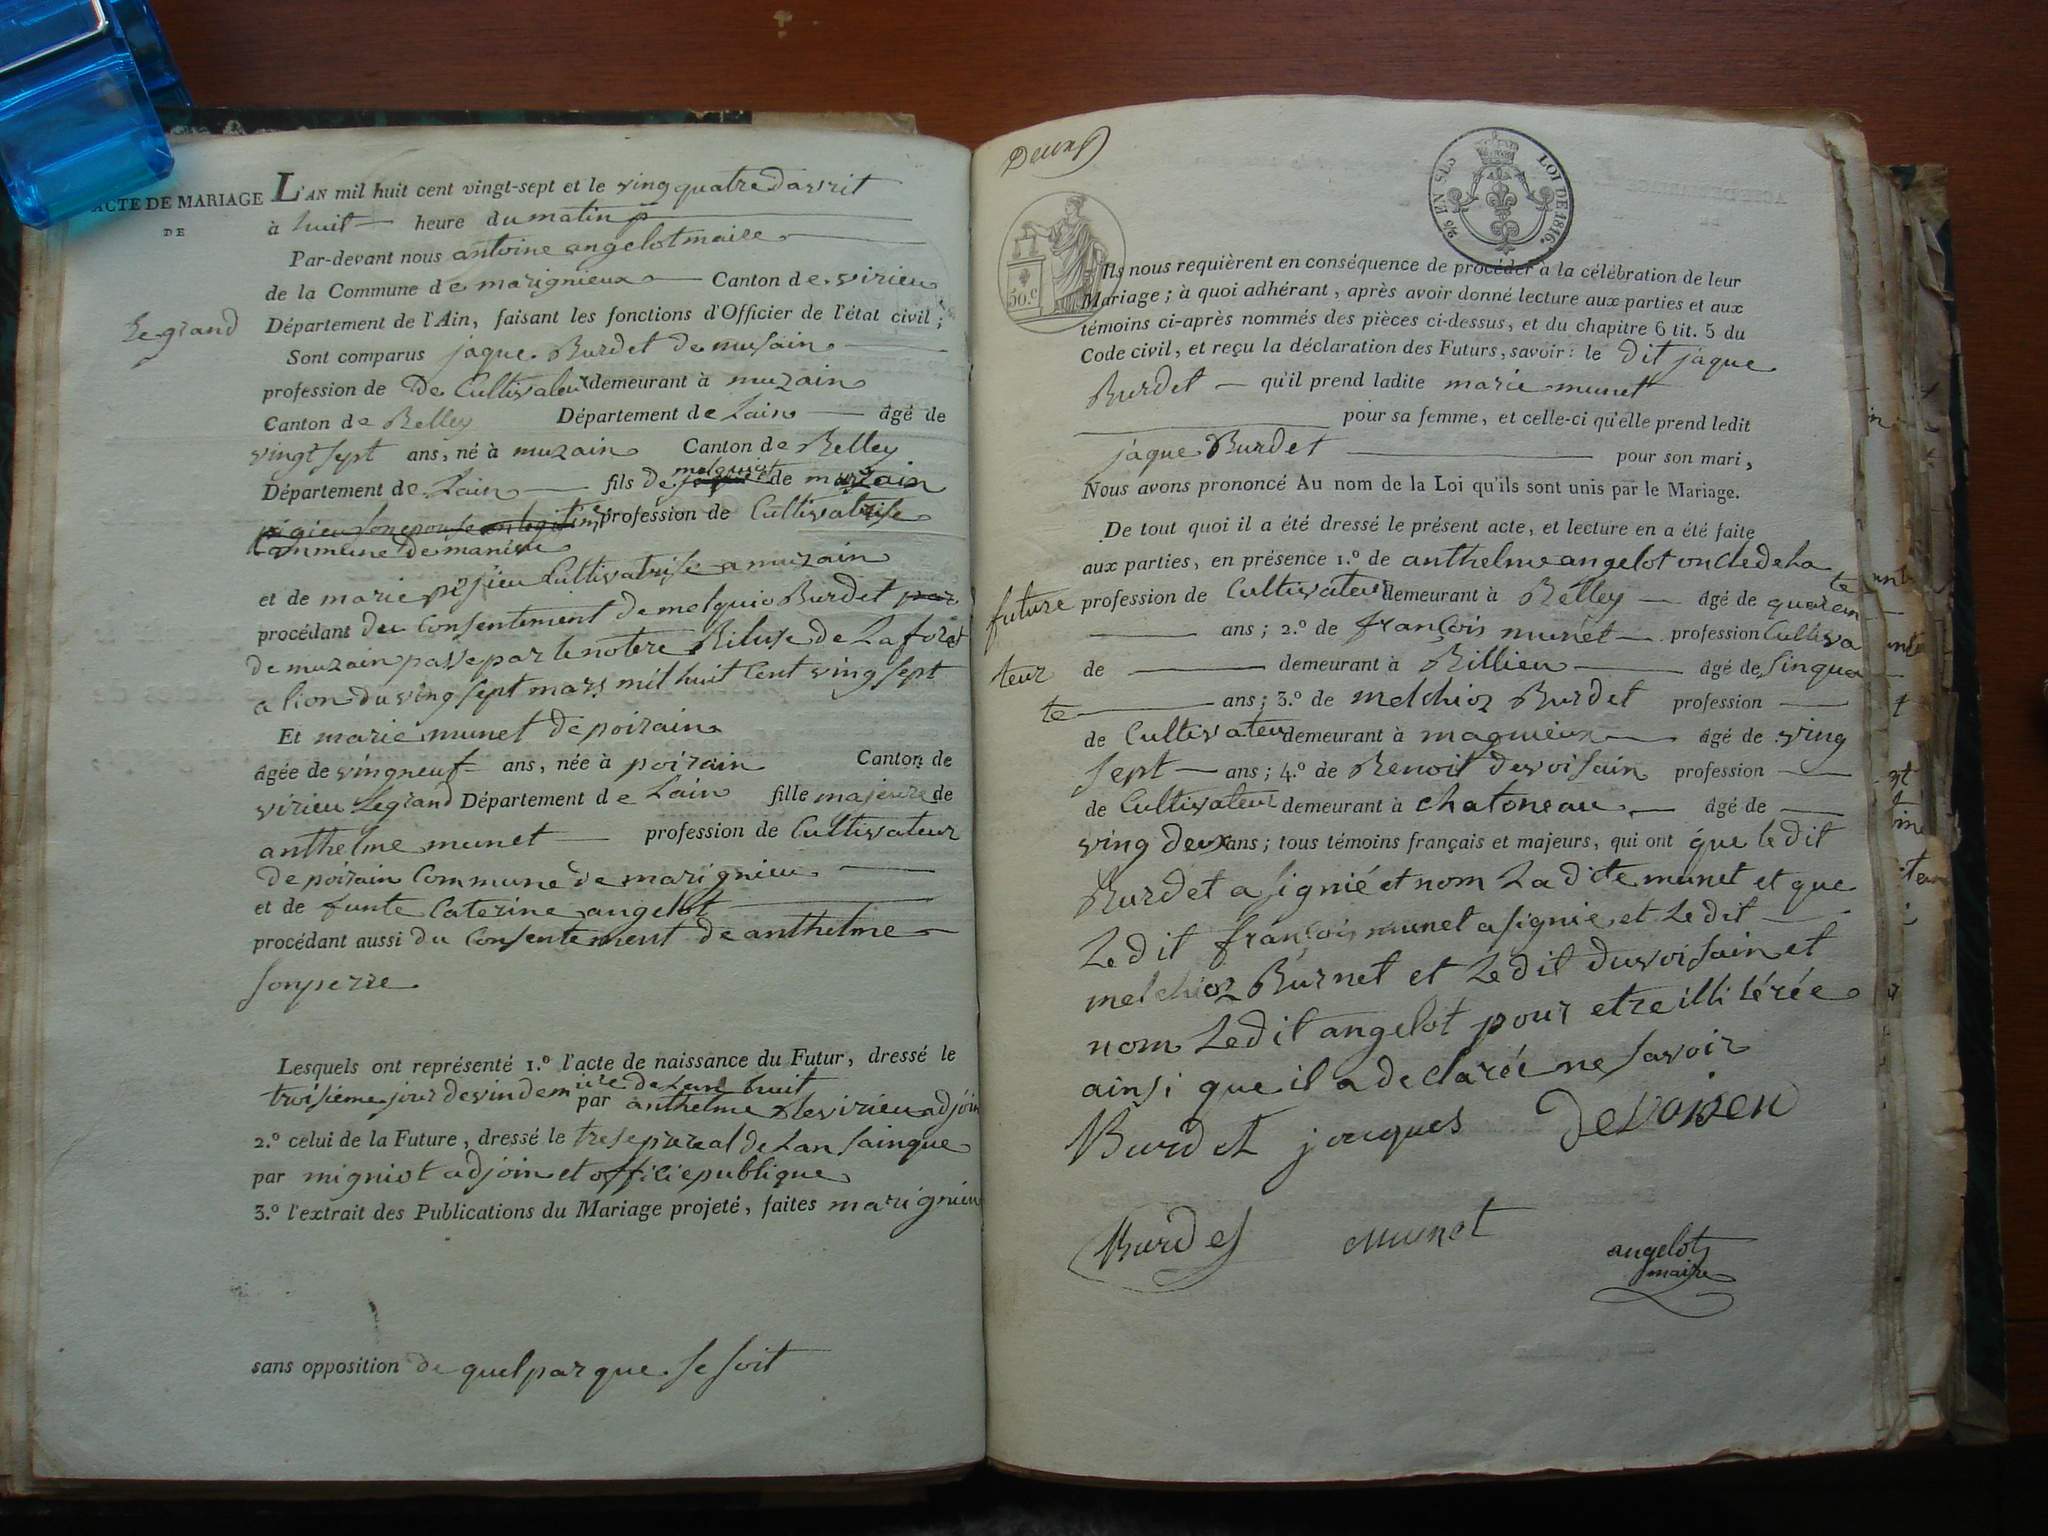 ACTE DE MARIAGE
DE
L'AN mil huit cent vingt-sept et le ving quatre davrit
à huit heure du matin
Par-devant nous antoine angelot maire
de la Commune de marignieux Canton de virieu
le grand
Département de l'Ain, faisant les fonctions d'Officier de l'état civil;
Sont comparus jaque Burdet de musain
profession de De Cultivateur demeurant à muzain
Canton de Belley Département de Lain âgé de
vingt sept ans, né à muzain Canton de Belley
Département de Lain fils de melquiot de muzain
son epouse profession de Cultivatrise
Commune de
et de marie Cultivatrise a muzain
procédant du Consentement de melquio Burdet par
de muzain passe par le notere de La foret
a lion du ving sept mars mil huit Cent ving sept
Et marie munet de poirain
âgée de vingneuf ans, née à poirain Canton de
virieu Legrand Département de Lain fille majeure de
anthelme munet profession de Cultivateur
de poirain Commune de marignieu
et de funte Caterine angelot
procédant aussi du Consentement de anthelme
son perre
Lesquels ont représenté 1.º l'acte de naissance du Futur, dressé le
troisieme jour de vindemiere de Lan huit
par anthelme devirieu adjoin
2.º celui de la Future, dressé le trese prereal de Lan sainque
par migniot adjoin et officie publique
3.º l'extrait des Publications du Mariage projeté, faites marignieu
sans opposition de quel par que se soit
50.c
2/6 EN SUS
LOI DE 1816.
Ils nous requièrent en conséquence de procéder à la célébration de leur
Mariage; à quoi adhérant, après avoir donné lecture aux parties et aux
témoins ci-après nommés des pièces ci-dessus, et du chapitre 6 tit. 5 du
Code civil, et reçu la déclaration des Futurs, savoir: le dit jaque
Burdet qu'il prend ladite marie munet
pour sa femme, et celle-ci qu'elle prend ledit
jaque Burdet pour son mari,
Nous avons prononcé Au nom de la Loi qu'ils sont unis par le Mariage.
De tout quoi il a été dressé le présent acte, et lecture en a été faite
aux parties, en présence 1.º de anthelme angelot oncle de La
future profession de Cultivateur demeurant à Belley âgé de quarente
ans; 2.º de françois munet profession Cultiva
teur de demeurant à Billieu âgé de sinqua
te ans; 3.º de melchior Burdet profession
de Cultivateur demeurant à magnieux âgé de ving
sept ans; 4.º de Benoit devoisain profession
de Cultivateur demeurant à chatoneau âgé de
ving deux ans; tous témoins français et majeurs, qui ont que le dit
Burdet a signié et nom La dite munet et que
Ledit françois munet a signie et Le dit
melchior Burnet et Le dit duvoisain et
nom Ledit angelot pour etre illitérée
ainsi que il a declarée ne savoir
Burdet jacques devoisen
Burdet munet angelot
maire